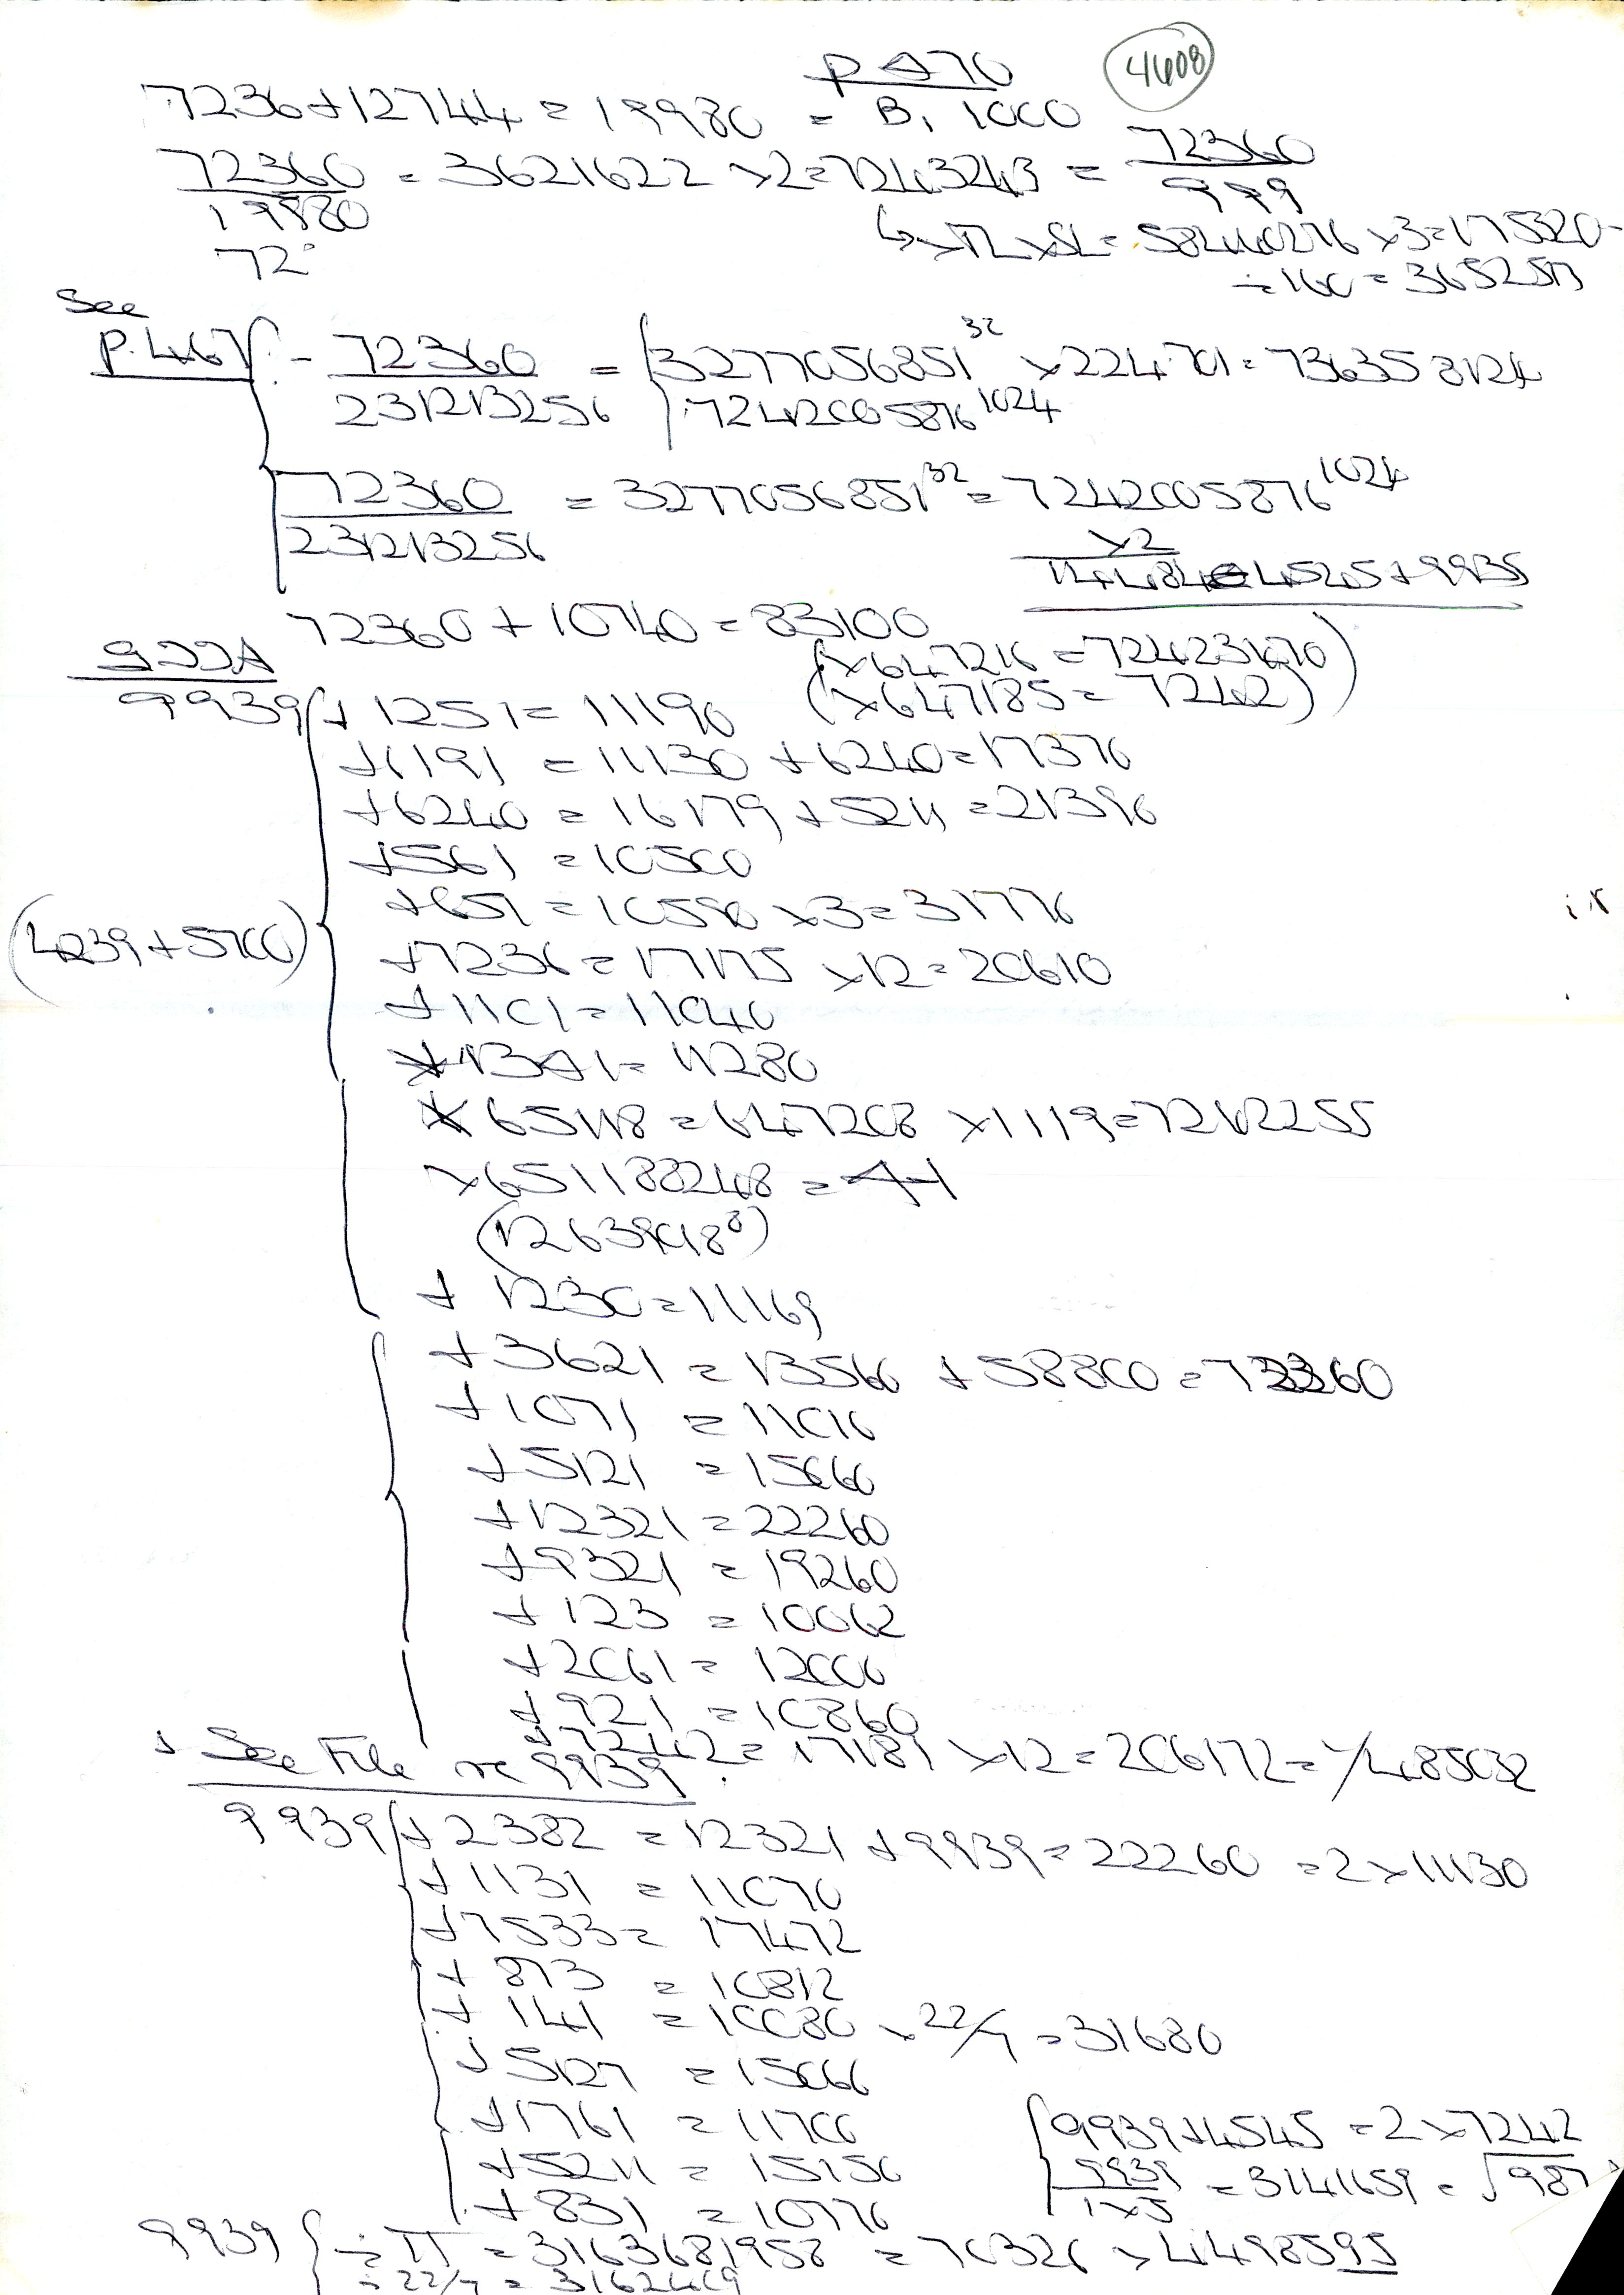 4608
7236 + 12744 = 19980 = B, 1000
72360/19980 = 3621622 x2 = 7243243 = 72360/999
72°
÷ 160 = 3652513
See
P. 467 { - 72360/231213256 = { 3277056851^32 x 224701 = 73635 8124
7242005876^1024
72360/231213256 = 3277056851^32 = 7242005876^1024
x2
72360 + 10740 = 83100
(x647216 = 72423470)
(x647185 = 7242)
9939 { + 1251 = 11190
+ 1191 = 11130 + 6240 = 17370
+ 6240 = 16179 + 5211 = 21390
+ 561 = 10500
+ 651 = 10590 x3 = 31770
(4239 + 5700)
+ 7236 = 17175 x12 = 20610
+ 1101 = 11040
+ 1341 = 11280
x 65118 = 647208 x 1119 = 7242255
x 651188248 =
(12639018^8)
+ 1230 = 11169
+ 3621 = 13560 + 58800 = 72360
+ 1071 = 11010
+ 5121 = 15060
+ 12321 = 22260
+ 9321 = 19260
+ 123 = 10062
+ 2061 = 12000
+ 921 = 10860
+ 7242 = 17181 x12 = 206172 = 1/485032
See File re 9939
9939 { + 2382 = 12321 + 9939 = 22260 = 2 x 11130
+ 1131 = 11070
+ 7533 = 17472
+ 873 = 10812
+ 141 = 10080 x 22/7 = 31680
+ 5127 = 15066
+ 1761 = 11700
+ 5211 = 15150
+ 831 = 10770
{ 9939 + 4545 = 2 x 7242
= 3141659 = √987
9939 { ÷ π = 3163681958 = 70326 x 4498595
÷ 22/7 = 31624